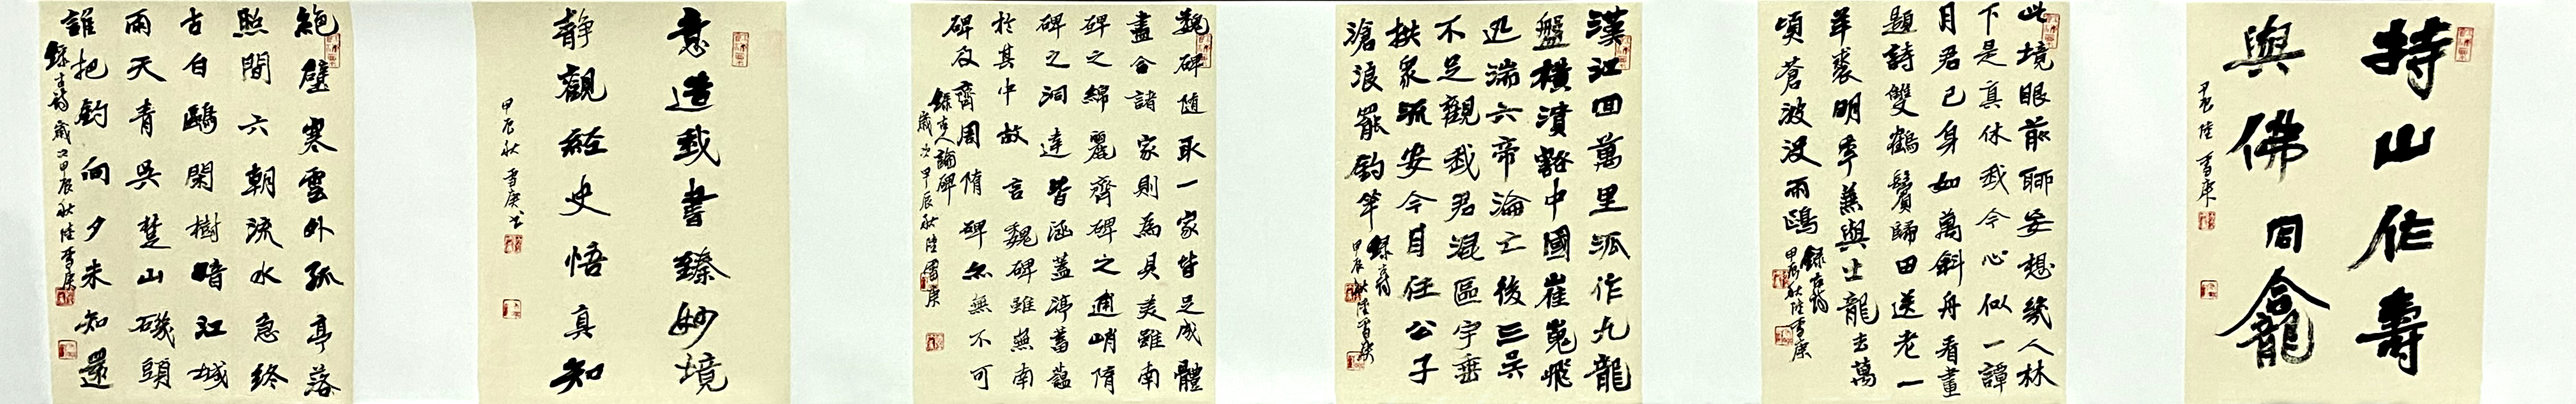 持山作壽
與佛同龕
甲辰 陸雪庚
此境眼前聊妄想幾人林
下是真休我今心似一潭
月君已身如萬斛舟看畫
題詩雙鶴鬢歸田送老一
羊裘明季蕉與士龍去萬
頃蒼波没兩鷗
錄古詩
甲辰秋陸雪庚
漢江回萬里派作九龍
盤橫潰豁中國崔嵬飛
迅湍六帝淪亡後三吳
不足觀我君混區宇垂
拱衆流安今日任公子
滄浪罷釣竿
錄古詩
甲辰秋陸雪庚
魏碑随取一家皆足成體
盡合諸家則為具美雖南
碑之綿麗齊碑之逋峭隋
碑之洞達皆涵蓋渟蓄蘊
於其中故言魏碑雖無南
碑及齊周隋碑亦無不可
錄古人論碑
歲次甲辰秋陸雪庚
意造我書臻妙境
静觀經史悟真知
甲辰秋雪庚書
絶壁寒雲外孤亭落
照間六朝流水急終
古白鷗閑樹暗江城
雨天青吳楚山磯頭
誰把釣向夕未知還
錄古詩歲次甲辰秋陸雪庚